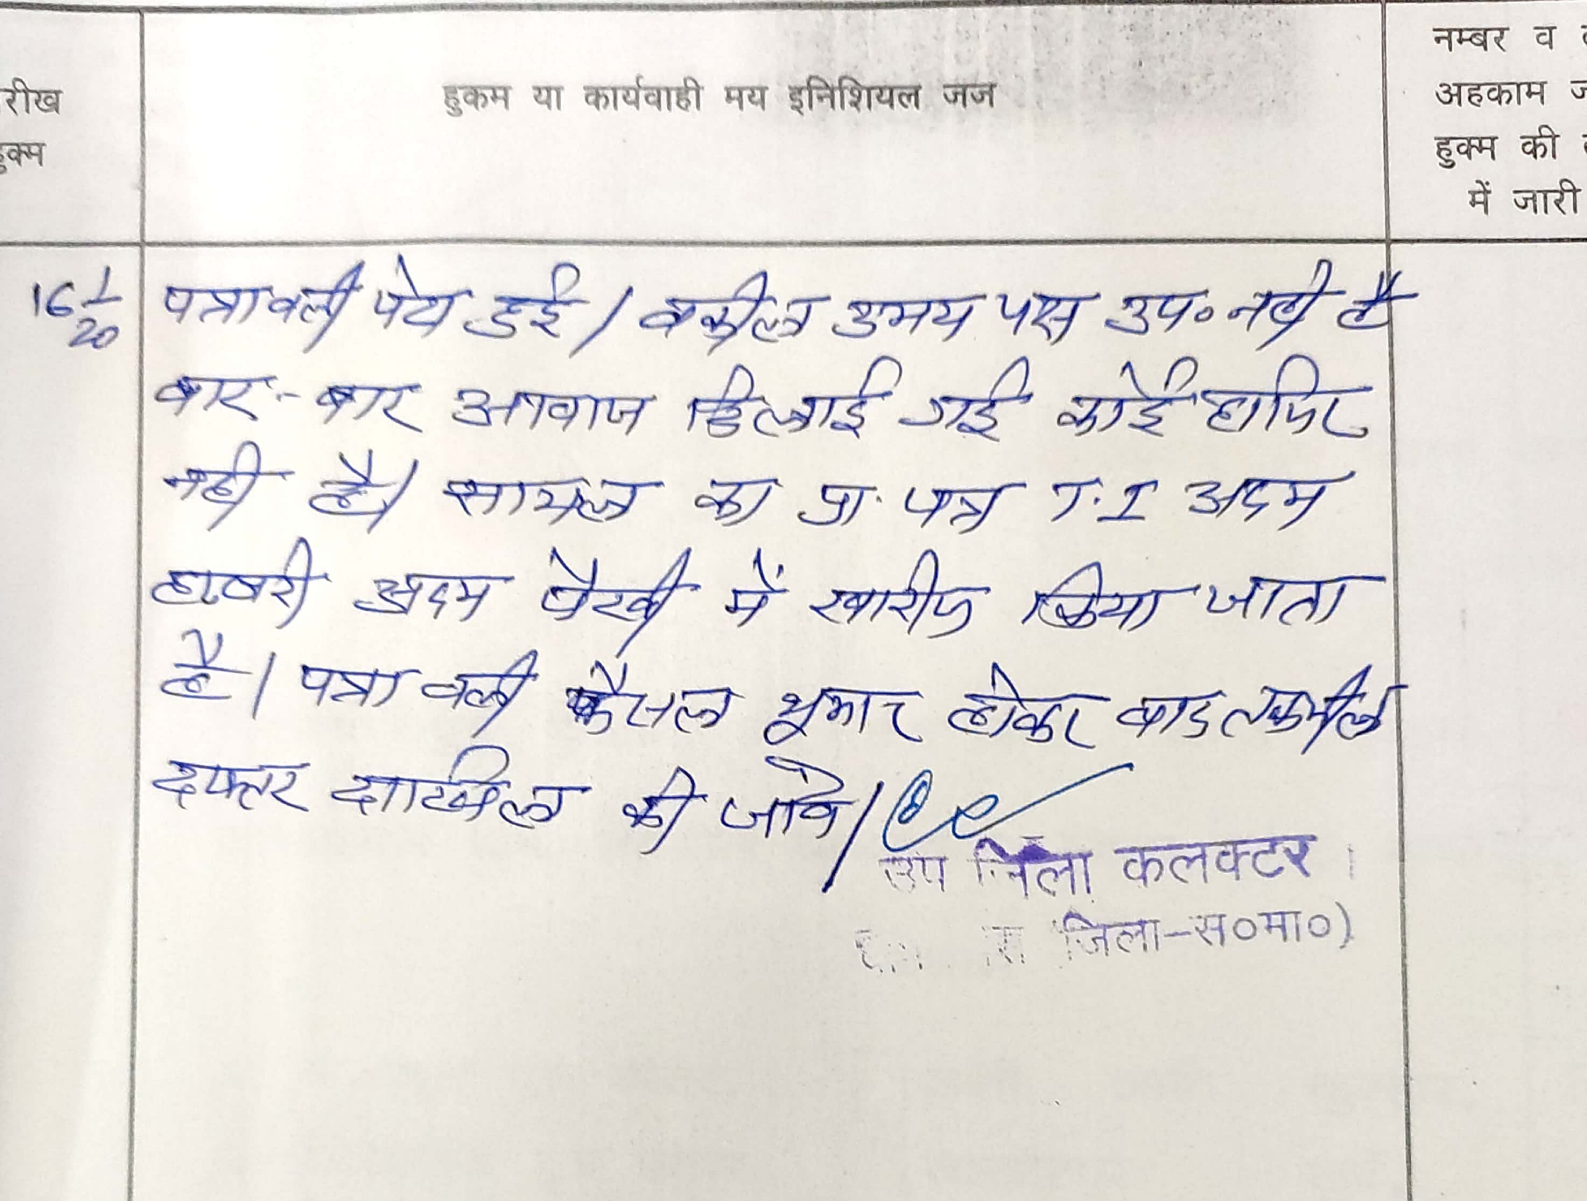 नम्बर व
रीख
हुकम या कार्यवाही मय इनिशियल जज
अहकाम
हुक्म
हुक्म की
में जारी
16 1/20 पत्रावली पेश हुई। वकील उभय पक्ष उप० नही है
बार-बार आवाज दिलाई गई कोई हाजिर
नही है। सायल का प्रा. पत्र T.I अदम
हाजरी अदम पैरवी में खारीज किया जाता
है। पत्रावली फैसल शुमार होकर बाद तकमील
दफ्तर दाखिल की जावे।
उप जिला कलक्टर
जिला-स०मा०)